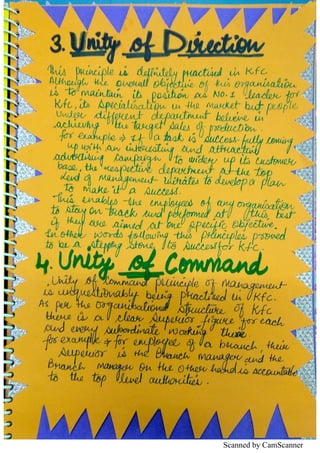 3. Unity of Direction
This principle is definitely practised in KFC.
Although the overall objective of this organisation
is to maintain its position as No. 1 leader for
KFC, its specialisation in the market but people
under different department believe in
achieving the target sales of production.
for example → If a task is successfully coming
up with an interesting and attractive
advertising campaign to widen up its customer
base, the respective department at the top
level of management initiates to develop a plan
to make it a success.
This enables the employees of any organisation
to stay on track and performed at their best
if they are aimed at one specific objective.
In other words following this principles proved
to be a stepping stone, to success for KFC.
4. Unity of Command
Unity of Command principle of management
is unquestionably being practised in KFC.
As per the Organisational Structure of KFC
there is a clear superior figure for each
and every subordinate working there
for example → for employee of a branch, their
superior is the branch manager and the
Branch manager on the other hand is accountable
to the top level authorities.
Scanned by CamScanner